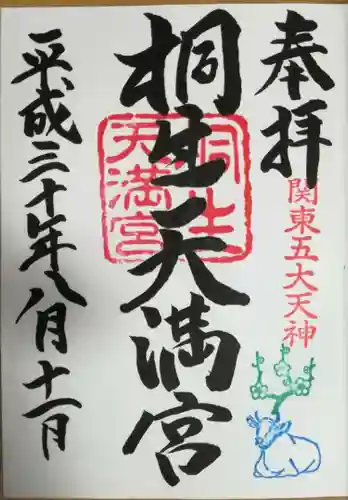 奉拝
関東五大天神
桐生天満宮
桐生
天満宮
平成三十年八月十一日